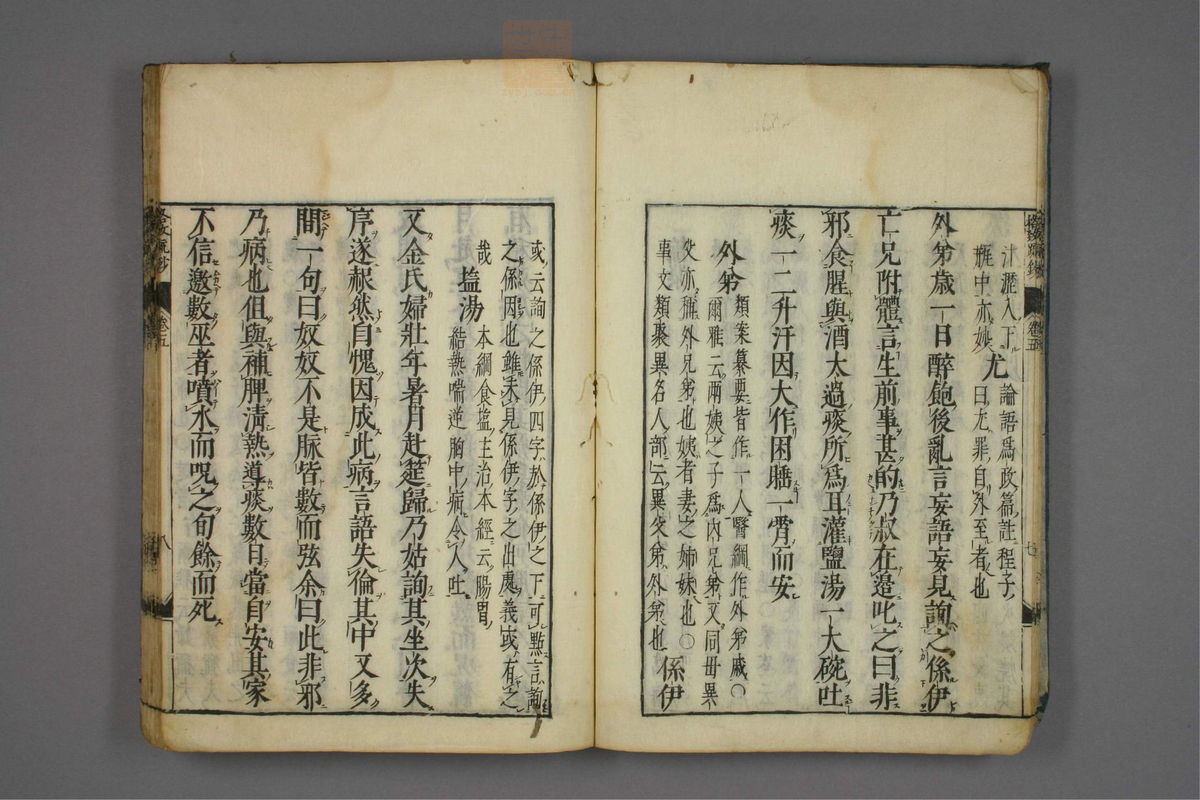 汁瀝入下
尤 論語爲政篇註程子
曰尤罪自外至者也
外弟歳一日醉飽後亂言妄語妄見詢之係伊
亡兄附體言生前事甚的乃叔在邊叱之曰非
邪食腥與酒太過痰所爲耳灌鹽湯一大碗吐
痰一二升汗因大作困睡一霄而安
外弟 類案纂要皆作一人醫綱作外弟戚〇
爾雅云兩姨之子爲内兄弟又同毋異
父亦稱外兄弟也姨者妻之姉妹也〇
事文類聚異名人部云異父弟外弟也
係伊
或云詢之係伊四字於係伊之下可點言詢
之係因也雖未見係伊字之出處義或有之
哉
塩湯 本綱食塩主治本經云腸胃
結熱喘逆胸中病令人吐
又金氏婦壯年暑月赴筵歸乃姑詢其坐次失
序遂赧然自愧因成此病言語失倫其中又多
間一句曰奴奴不是脉皆數而弦余曰此非邪
乃病也但與補脾清熱導痰數日當自安其家
不信邀數巫者噴水而呪之旬餘而死
卷五
七
卷五
八